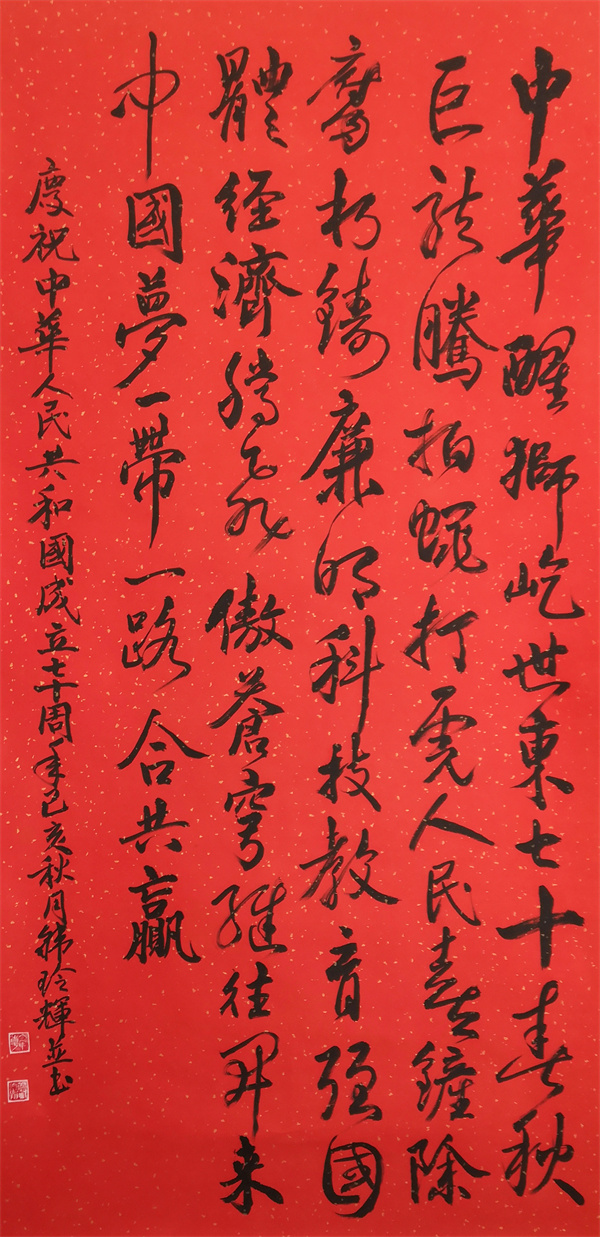 中華醒獅屹世東七十春秋
巨龍騰拍蠅打虎人民喜鏟除
腐朽鑄廉明科技教育强國
體經濟騰飛傲蒼穹繼往開来
中國夢一帶一路合共贏
慶祝中華人民共和國成立七十周年己亥秋月玲輝並书